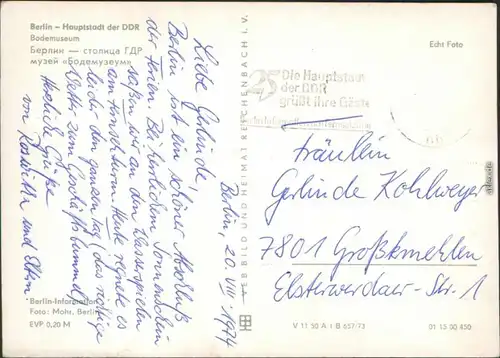 Berlin – Hauptstadt der DDR
Bodemuseum
Берлин — столица ГДР
музей «Бодемузеум»
Berlin, 20. VIII. 1974
Liebe Gerlinde
Berlin ist ein schöner Abschluß
der Ferien. Bei herrlichem Sonnenschein
saßen wir an den Wasserspielen
am Fernsehturm. Heute regnete es
leider den ganzen Tag (das richtige
Wetter zum Geschäftsbummel)
Herzliche Grüße
von und Eltern.
Berlin-Information
Foto: Mohr, Berlin
EVP 0,20 M
VEB BILD UND HEIMAT REICHENBACH I. V.
Echt Foto
25 Die Hauptstadt
der DDR
grüßt ihre Gäste
Fräulein
Gerlinde Kohlweyer
7801 Großkmehlen
Elsterwerdaer-Str. 1
V 11 50 A 1 B 657/73
01 15 00 450